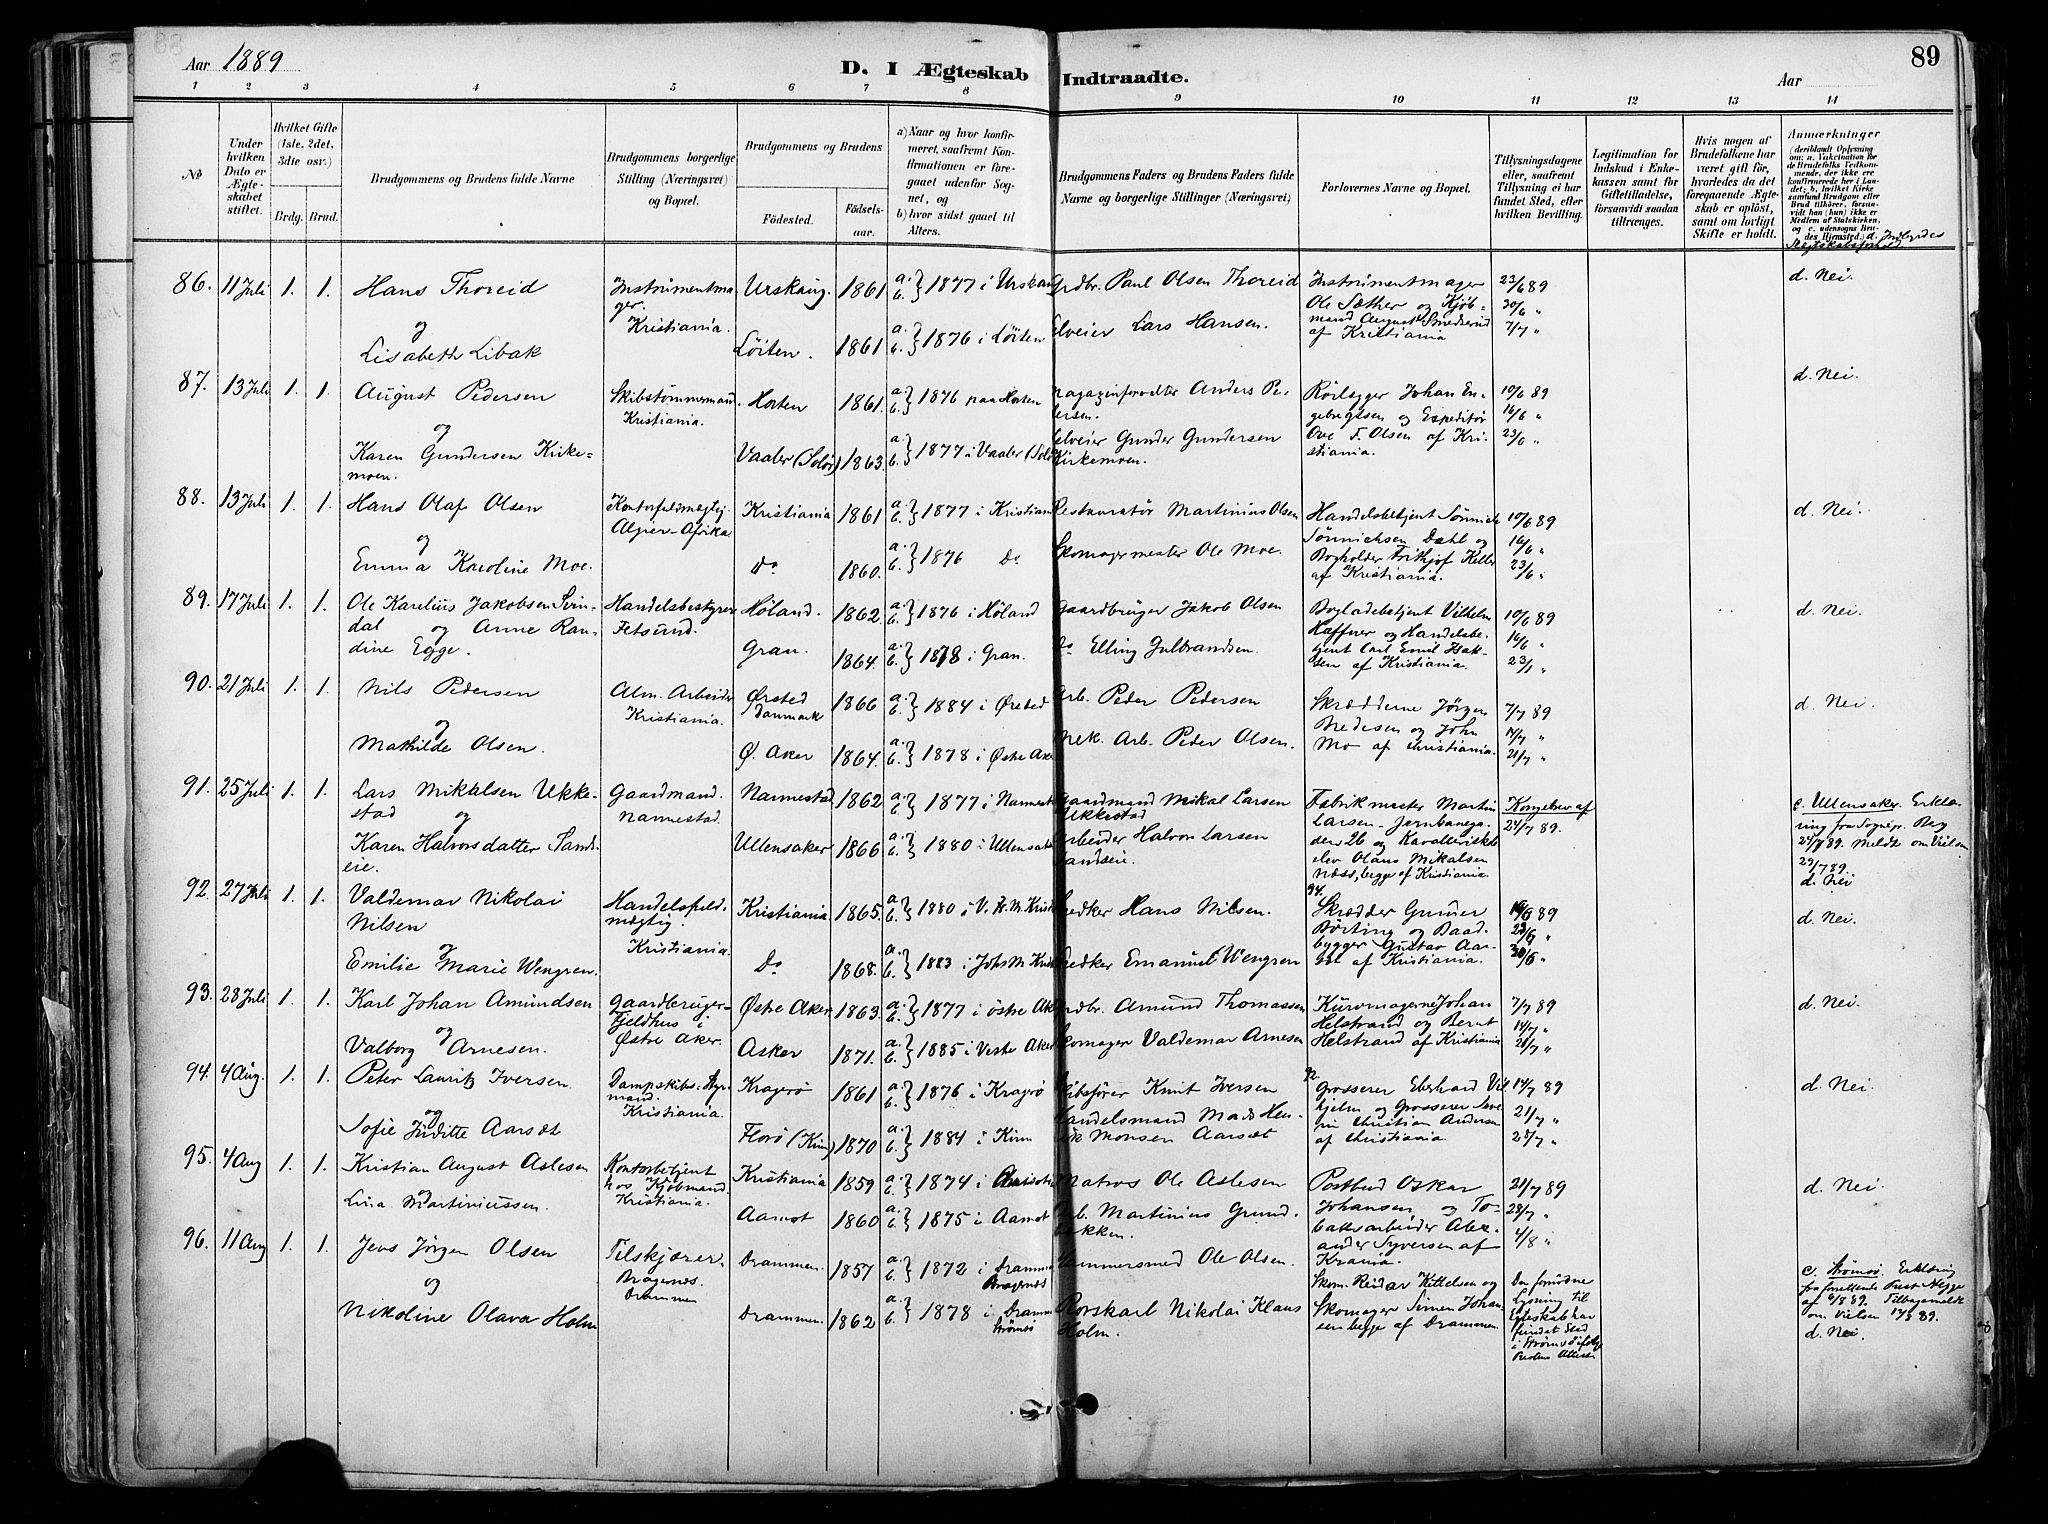 Aar 1889
D. I Ægteskab Indtraadte.
Aar
89
1 2 3 4 5 6 7 8 9 10 11 12 13 14
No
Under hvilken Dato er Ægteskabet stiftet.
Hvilket Gifte (1ste, 2det, 3die osr.)
Brdg. Brud.
Brudgommens og Brudens fulde Navne
Brudgommens borgerlige Stilling (Næringsvei) og Bopæl.
Brudgommens og Brudens
Fødested. Fødselsaar.
a) Naar og hvor konfirmeret, saafremt Konfirmationen er foregaaet udenfor Sognet, og
b) hvor sidst gaaet til Alters.
Brudgommens Faders og Brudens Faders fulde Navne og borgerlige Stillinger (Næringsvei)
Forlovernes Navne og Bopæl.
Tillysningsdagene eller, saafremt Tillysning ei har fundet Sted, efter hvilken Bevilling.
Legitimation for Indskud i Enkekassen samt for Giftetilladelse, forsaavidt saadan tiltrænges.
Hvis nogen af Brudefolkene har været gift før, hvorledes da det foregaaende Ægteskab er opløst, samt om lovligt Skifte er holdt.
Anmærkninger (deriblandt Oplysning om: a. Vakcination for de Brudefolks Vedkommende, der ikke ere konfirmerede her i Landet; b. hvilket Kirkesamfund Brudgom eller Brud tilhører, forsaavidt han (hun) ikke er Medlem af Statskirken, og c. udensogns Brudes Hjemsted.) d. Indbyrdes Slægtskabsforhold
86. 11 Juli 1. 1. Hans Thoreid Instrumentmager Urskoug. 1861 a. b. } 1877 i Urskoug Grdbr. Paul Olsen Thoreid Instrumentmager 23/6 89 d. Nei.
og Kristiania. Ole Sæther og Kjøbmand August Smedsrud 30/6 "
Lisabeth Libak Löiten. 1861 a. b. } 1876 i Löiten Selveier Lars Hansen. af Kristiania 7/7 "
87. 13 Juli 1. 1. August Pedersen Skibstömmermand. Horten 1861. a. b. } 1876 paa Horten Magazinforvalter Anders Pedersen. Rörlægger Johan Engebrigtsen og Expeditör 10/6 89 d. Nei.
og Kristiania. 16/6 "
Karen Gundersen Kirkemoen. Vaaler (Solör) 1863. a. b. } 1877 i Vaaler (Solör Selveier Gunder Gundersen Kirkemoen. Ove F. Olsen af Kristiania. 23/6 "
88. 13 Juli 1. 1. Hans Olaf Olsen Kontorfuldmægtig Algier-Afrika Kristiania 1861 a. b. } 1877 i Kristiania Restauratør Martinius Olsen Handelsbetjent Sönnich Sönnichsen Dæhl og 10/6 89 d. Nei.
og 16/6 "
Emma Karoline Moe. Do 1860. a. b. } 1876 Do Skomagermester Ole Moe. Bogholder Frithjof Keller af Kristiania. 23/6 "
89. 17 Juli 1. 1. Ole Karelius Jakobsen Svindal og Anne Randine Egge. Handelsbestyrer Fetsund. Høland. 1862. a. b. } 1876 i Høland Gaardbruger Jakob Olsen Bogladebetjent Vilhelm Haffner og Handelsbetjent Carl Emil 10/6 89 d. Nei.
16/6 "
Gran. 1864. a. b. } 1878 i Gran. Do Elling Gulbrandsen. af Kristiania. 23/ "
90. 21 Juli 1. 1. Nils Pedersen Alm. Arbeider Kristiania. Ørsted Danmark 1866 a. b. } 1884 i Ørsted Arb. Peder Pedersen Skrædderne Jörgen 7/7 89 d. Nei.
og Bredesen og John 14/7 "
Mathilde Olsen. Ø. Aker 1864. a. b. } 1878 i Østre Aker Mek. Arb. Peder Olsen. Mo af Christiania. 21/7 "
91. 25 Juli 1. 1. Lars Mikalsen Ukkestad og Gaardmand. Nannestad. Nannestad 1862 a. b. } 1877 i Nannest Gaardmand Mikal Larsen Ukkestad Fabrikmester Martin Larsen - Jernbanegaden 26 og Kavalleriskoleelev Olaus Mikalsen Næss, begge af Kristiania. Kongebrev af 24/7 89. c. Ullensaker. Erklæring fra Sognepr. Berg 24/7 89. Meldt om Vielsen 29/7 89. d. Nei
Karen Halvorsdatter Sandseie. Ullensaker 1866 a. b. } 1880 i Ullensaker Arbeider Halvor Larsen Sandseie.
92. 27 Juli 1. 1. Valdemar Nikolai Nilsen Handelsfuldmægtig. Kristiania. Kristiania 1865. a. b. } 1880 i V. A. M. Krist Snedker Hans Nilsen. 94. Skrædder Gunder 16/6 89 d. Nei.
og Börting og Baadbygger Gustav 23/6 "
Emilie Marie Wengren. Do 1868. a. b. } 1883 i Johs M. Krist Snedker Emanuel Wengren af Kristiania. 30/6 "
93. 28 Juli 1. 1. Karl Johan Amundsen Gaardbruger - Fjeldhus i Østre Aker. Østre Aker 1863. a. b. } 1877 i östre Aker Grdbr. Amund Thomassen Kurvmagerne Johan 7/7 89 d. Nei.
og Helstrand og Bernt 14/7 "
Valborg Arnesen. Asker 1871. a. b. } 1885 i Vestre Aker Skomager Valdemar Arnesen Helstrand af Kristiania 21/7 "
94. 4 Aug. 1. 1. Peter Lauritz Iversen Dampskibs-Styrmand. Kristiania. Kragerö 1861 a. b. } 1876 i Kragerö Skibsförer Knut Iversen 92. Grosserer Eberhard Vilhjelm og Grosserer 14/7 89 d. Nei.
og 21/7 "
Sofie Juditte Aarsæt Florö (Kinn) 1870 a. b. } 1884 i Kinn Handelsmand Mads Henrik Monsen Aarsæt Christian Andersen af Christiania. 28/7 "
95. 4 Aug 1. 1. Kristian August Aslesen Kontorbetjent hos Kjöbmand. Kristiania. Kristiania 1859 a. b. } 1874 i Matros Ole Aslesen Postbud Oskar 21/7 89 d. Nei.
og Johansen, og 28/7 "
Lina Martiniussen. Aamot 1860 a. b. } 1875 i Aamot Arb. Martinius Grundbakken. Tobaksarbeider Alexander Syversen af Krania. 4/8 "
96. 11 Aug 1. 1. Jens Jörgen Olsen Feilskjærer. Bragernes. Drammen Drammen. 1857 a. b. } 1872 i Drammen Bragernæs Hammersmed Ole Olsen. Skom. Reidar Kittelsen og Den fornödne Lysning til Egteskab har fundet Sted i Strömsö ifölge c. Strömsö. Erklæring fra forrettende Præst af 6/8 89. Tilbagemeldt om Vielsen 14/8 89. d. Nei.
og
Nikoline Olava Holm Drammen 1862 a. b. } 1878 i Drammen Strömsö Rorskarl Nikolai Klaus Holm. Skomager Simen Johansen begge af Drammen